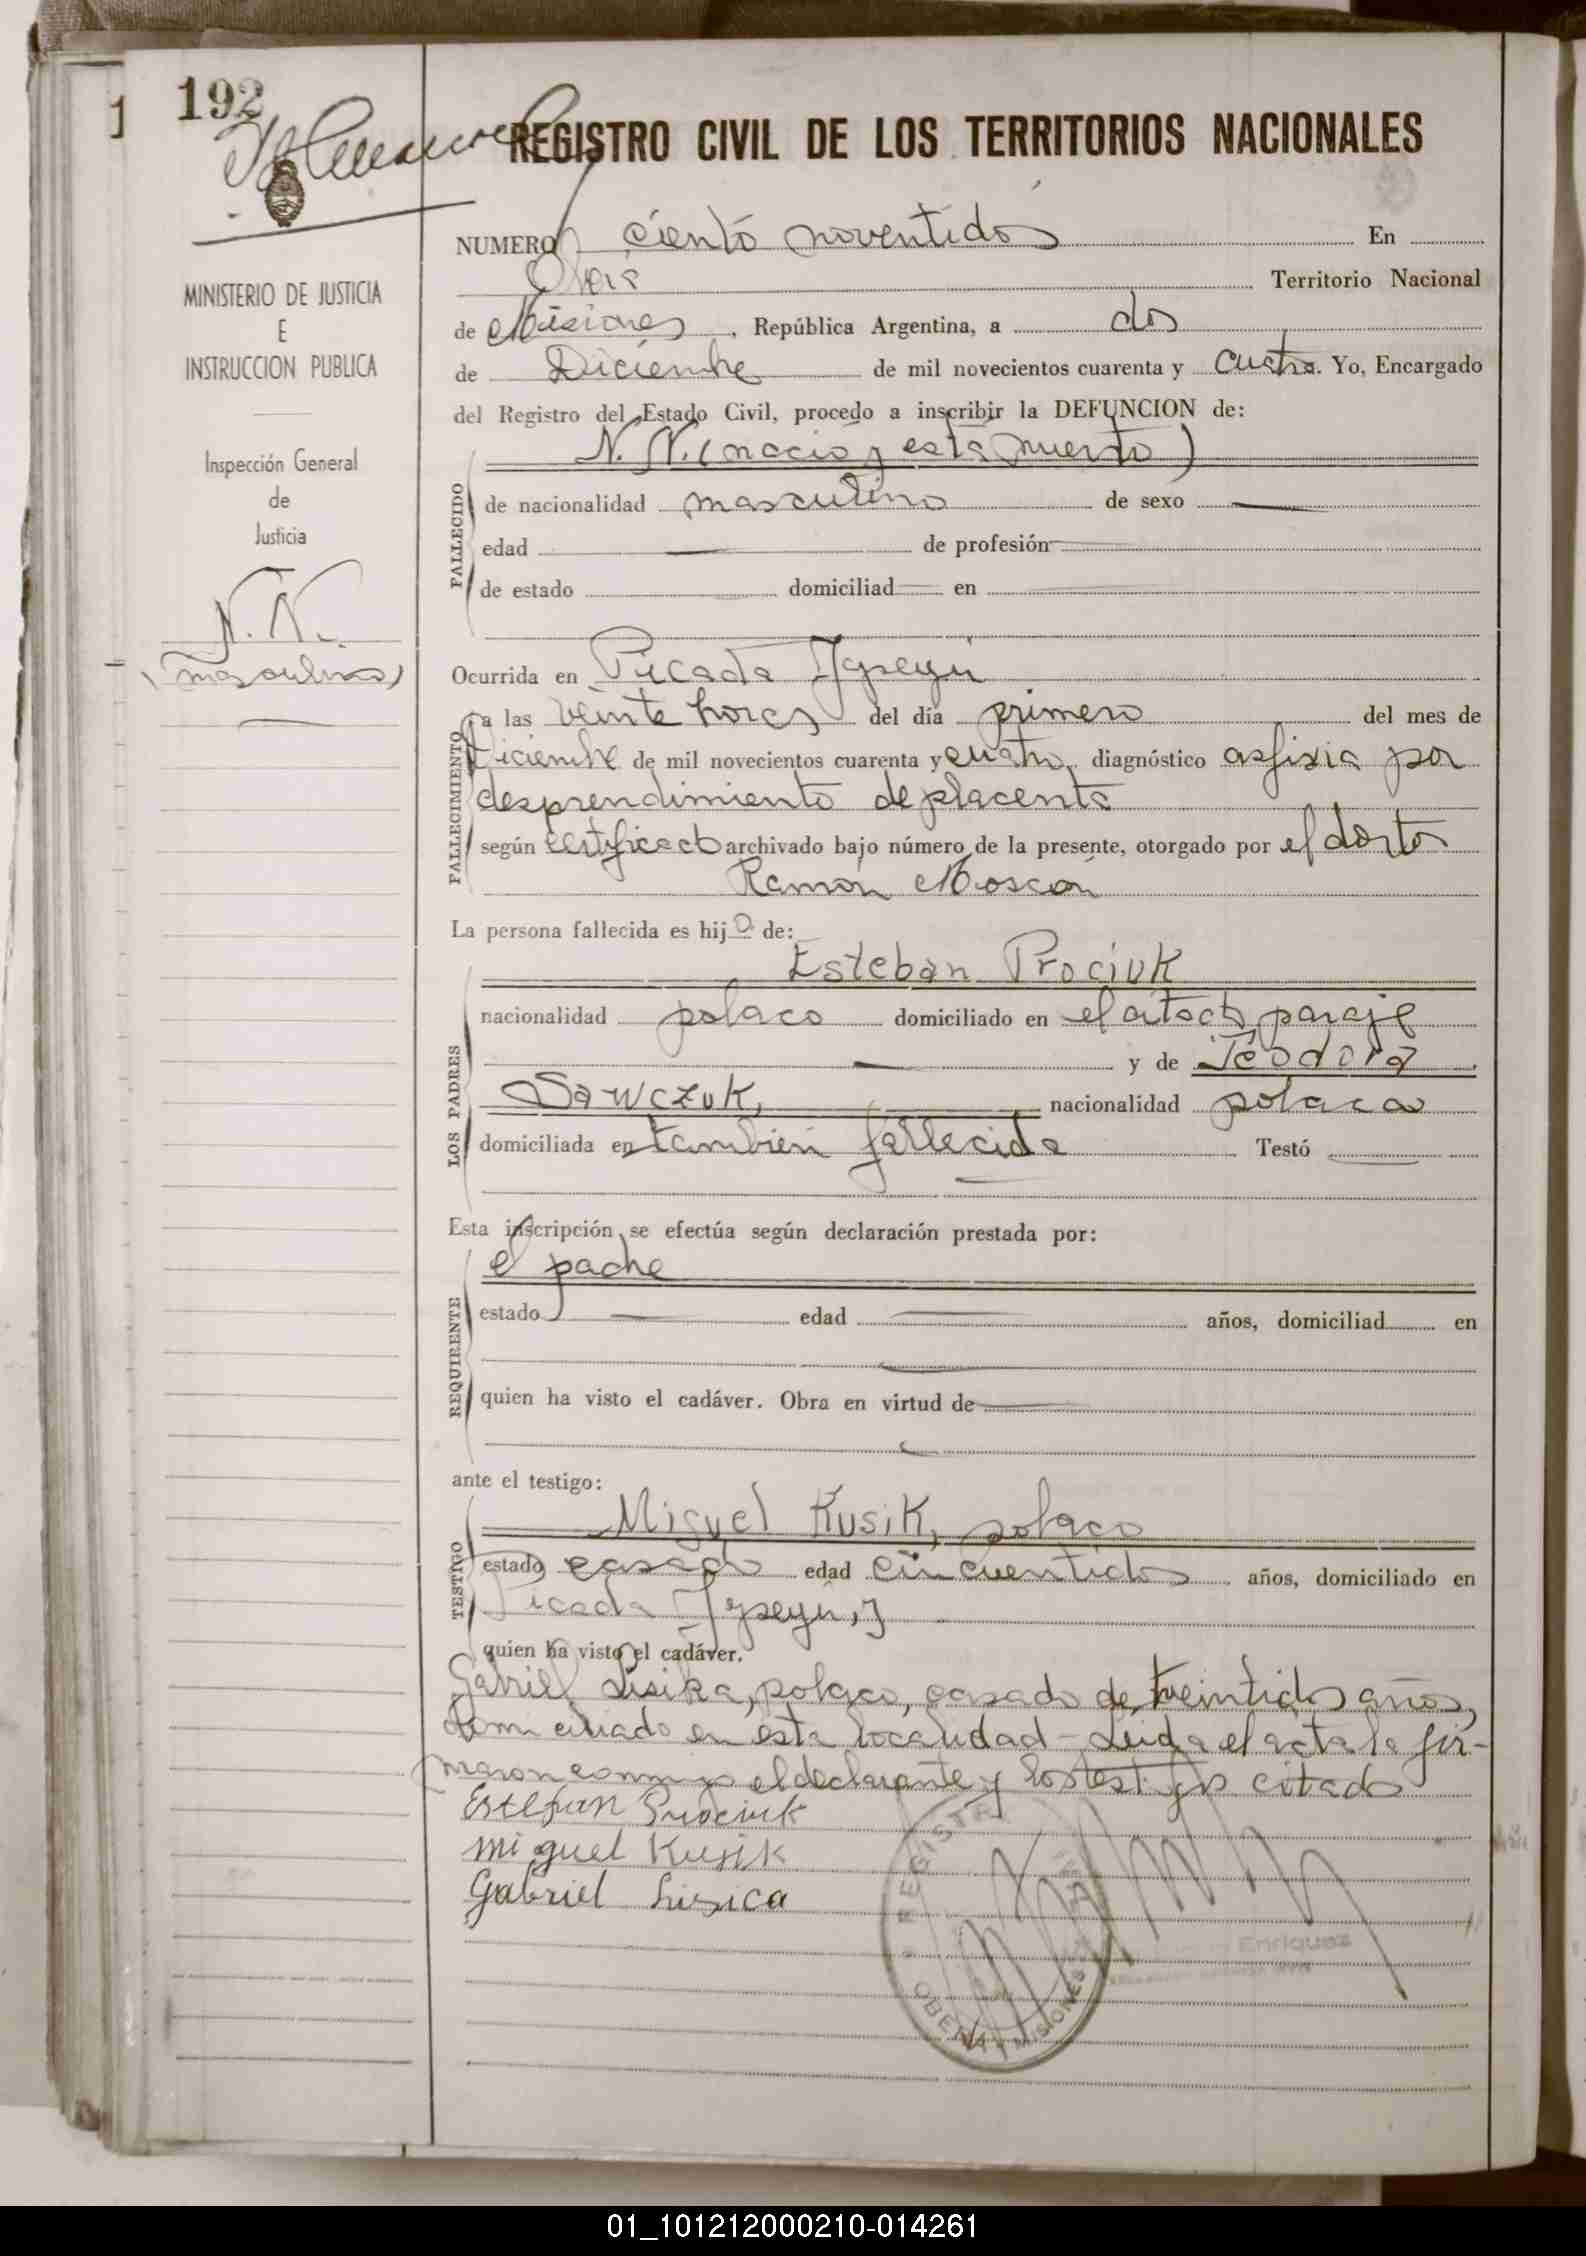 192
REGISTRO CIVIL DE LOS TERRITORIOS NACIONALES
MINISTERIO DE JUSTICIA
E
INSTRUCCION PUBLICA
Inspección General
de
Justicia
N. N.
(masculino)
NUMERO ciento noventidós En
Territorio Nacional
de Misiones, República Argentina, a dos
de Diciembre de mil novecientos cuarenta y cuatro. Yo, Encargado
del Registro del Estado Civil, procedo a inscribir la DEFUNCION de:
N. N. (nació y está muerto)
FALLECIDO
de nacionalidad masculino de sexo
edad de profesión
de estado domiciliad en
Ocurrida en Picada
FALLECIMIENTO
a las veinte horas del día primero del mes de
Diciembre de mil novecientos cuarenta y cuatro, diagnóstico asfixia por
desprendimiento de placenta
según certificado archivado bajo número de la presente, otorgado por el doctor
Ramón
La persona fallecida es hijo de:
LOS PADRES
Esteban Prociuk
nacionalidad polaco domiciliado en el citado paraje
y de Teodora
Sawczuk, nacionalidad polaca
domiciliada en también fallecida Testó
Esta inscripción se efectúa según declaración prestada por:
REQUIRENTE
el padre
estado edad años, domiciliad en
quien ha visto el cadáver. Obra en virtud de
ante el testigo:
TESTIGO
Miguel Kusik, polaco
estado casado edad cincuentidos años, domiciliado en
Picada
quien ha visto el cadáver.
Gabriel Lisika, polaco, casado de treintidos años,
domiciliado en esta localidad - Leida el acta la fir-
maron conmigo el declarante y los testigos citados
Estefan Prociuk
Miguel Kusik
Gabriel Lisica
REGISTRO
OBERA MISIONES
Enriquez
01_101212000210-014261